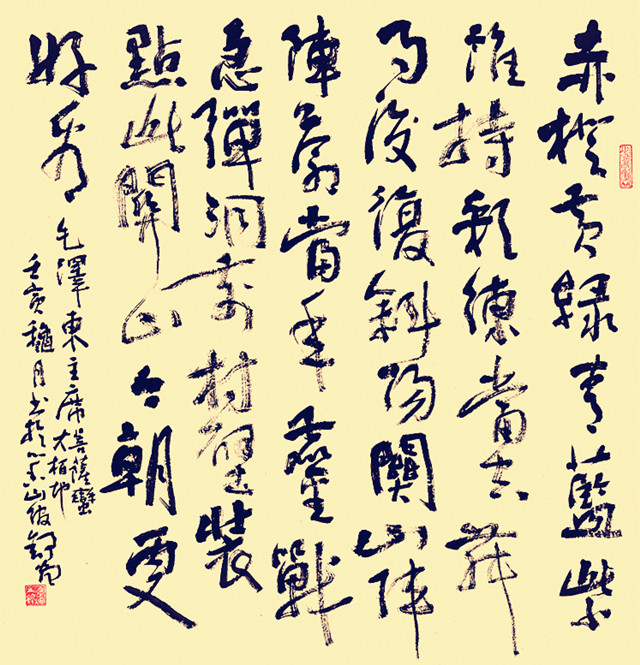 赤橙黃綠青藍紫
誰持彩練當空舞
雨後復斜陽關山陣
陣蒼當年鏖戰
急彈洞前村壁裝
點此關山今朝更
好看
毛澤東主席菩薩蠻
大柏地
壬寅穐月書於山